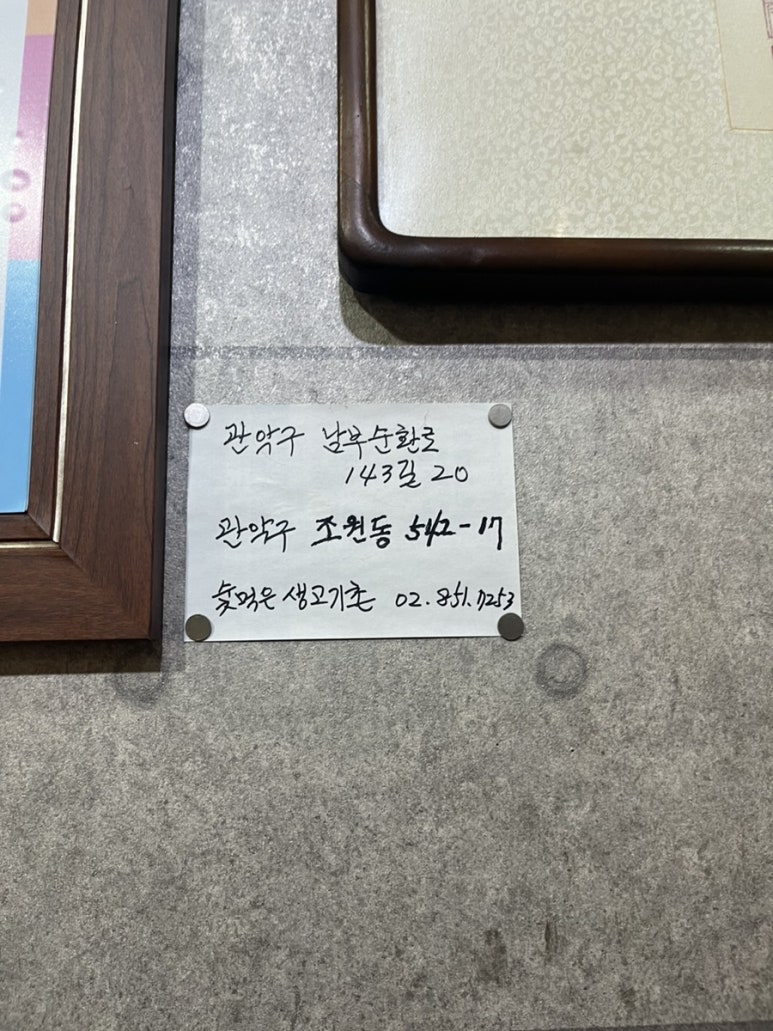 관악구 남부순환로
143길 20
관악구 조원동 512-17
숯먹은 생고기촌 02.851.7253